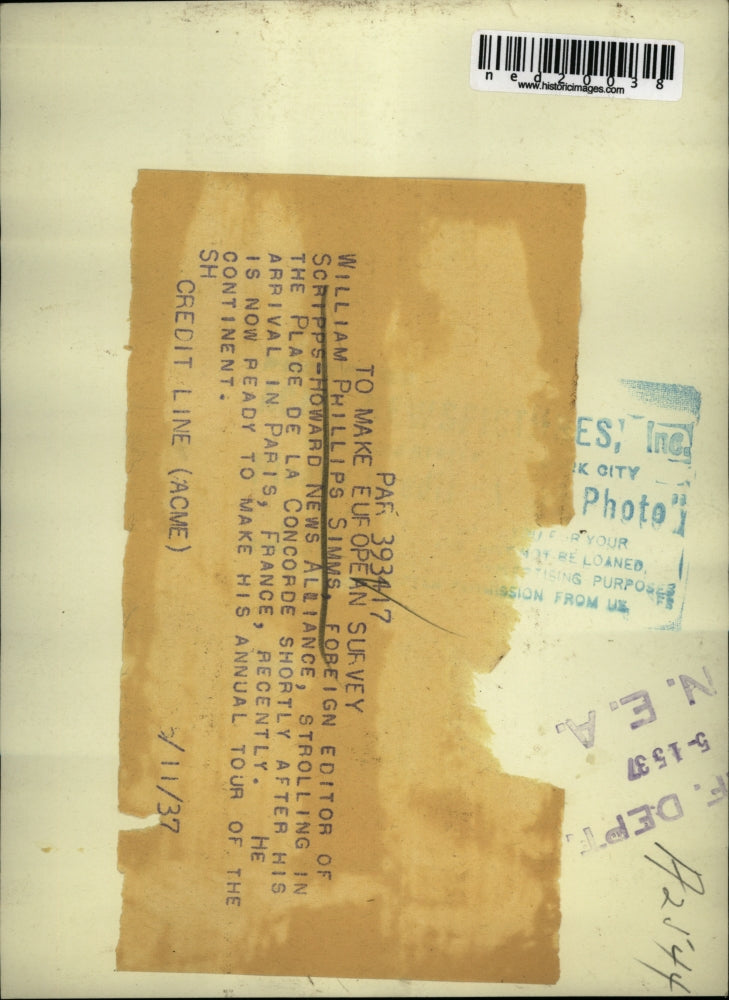 ned20038
www.historicimages.com
PAR 393417
TO MAKE EUROPEAN SURVEY
WILLIAM PHILLIPS SIMMS, FOREIGN EDITOR OF
SCRIPPS-HOWARD NEWS ALLIANCE, STROLLING IN
THE PLACE DE LA CONCORDE SHORTLY AFTER HIS
ARRIVAL IN PARIS, FRANCE, RECENTLY. HE
IS NOW READY TO MAKE HIS ANNUAL TOUR OF THE
CONTINENT.
SH
CREDIT LINE (ACME)
/11/37
ES, Inc.
K CITY
Photo"
R YOUR
NOT BE LOANED,
TISING PURPOSES
SSION FROM US
N. E. A.
5-1537
F. DEPT.
A2544